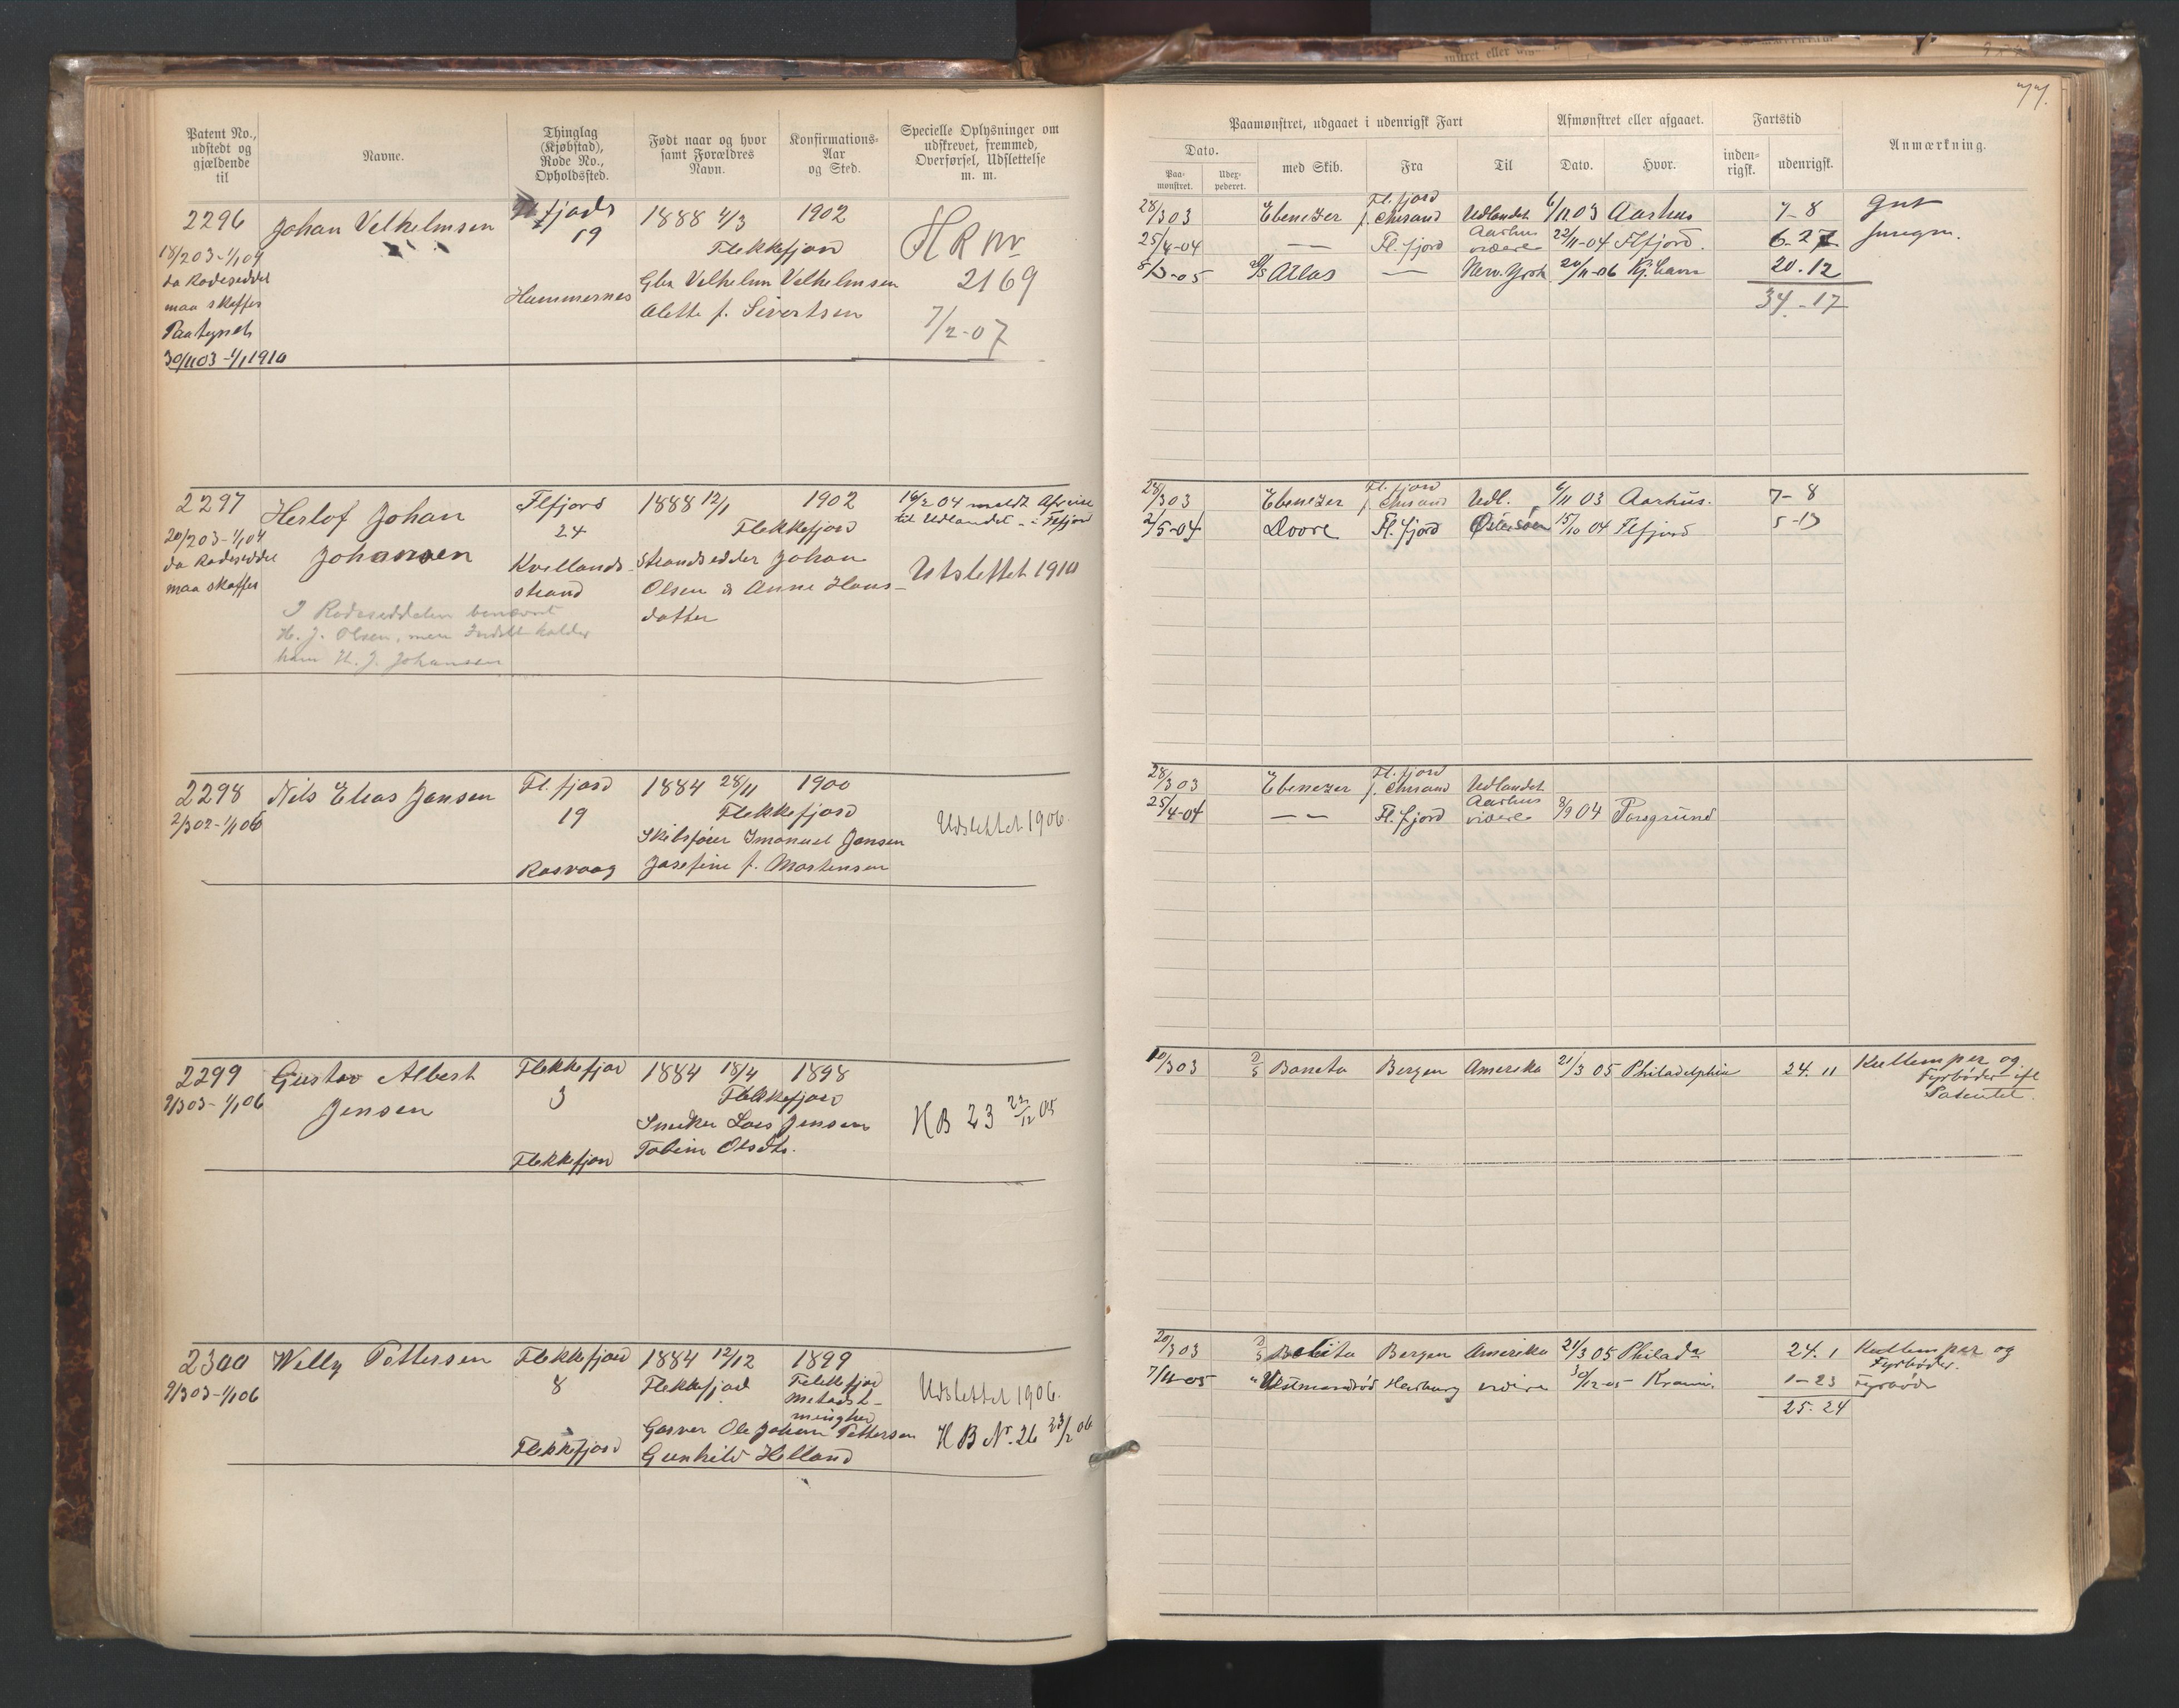 77.
Patent No., udstedt og gjældende til
Navne.
Thinglag (Kjøbstad), Rode No., Opholdssted.
Født naar og hvor samt Forældres Navn.
Konfirmations-Aar og Sted.
Specielle Oplysninger om udskrevet, fremmed, Overførsel, Udslettelse m. m.
Paamønstret, udgaaet i udenrigsk Fart
Afmønstret eller afgaaet.
Fartstid
Anmærkning.
Dato.
Paa-mønstret.
med Skib.
Fra
Til
Dato.
Hvor.
inden-rigsk.
udenrigsk.
2296 Johan Vilhelmsen Flfjord 1888 4/3 1902
18/2 03 - 1/1 04 19 Flekkefjord H R Nr
da Rodeseddel Hammernes Vilhelm Vilhelmsen 2169
maa skaffes Alette f. Sivertsen
Paategnet 7/2-07
30/11 03 - 1/1 1910
28/3 03 Ebenezer Fl.fjord f. Chrsand Udlandet 6/11 03 Aarhus 7-8 Gut
25/4-04 — Fl.fjord Aarhus videre 22/11-04 Flfjord. 6-27 Jungm.
Atlas — New York 20/11-06 Kj.havn 20.12
34-17
2297 Herlof Johan Flfjord 1888 12/1 1902 16/2 04 meldt Afreise
20/2 03 - 1/1 04 Johansen 24 Flekkefjord til Udlandet - i Flfjord
da Rodeseddel Kvellands- Strandsidder Johan Utslettet 1910
maa skaffes strand Olsen & Anne Hans-
datter
I Rodeseddelen benævnt
H. J. Olsen, men Indell kalder
ham H. J. Johansen
28/3 03 Ebenezer Fl.fjord f. Chrsand Udl. 6/11 03 Aarhus. 7-8
2/5-04 Doore Fl.fjord Østersøen 15/10 04 Flfjord 5-13
2298 Nils Elias Jansen Fl.fjord 1884 28/11 1900
2/3 02 - 1/1 06 19 Flekkefjord Udslettet 1906.
Skibsfører Imanuel Jansen
Rasvaag Josefine f. Mortensen
28/3 03 Ebenezer Fl.fjord f. Chrsand Udlandet
25/4-04 — — Fl.fjord Aarhus videre 8/9 04 Porsgrund
2299 Gustav Albert Flekkefjord 1884 18/4 1898
9/3 03 - 1/1 06 Jensen 3 Flekkefjord
Snedker Lars Jensen H B 23 22/12 05
Flekkefjord Tobine Olsdtr.
10/3 03 D/S Baneta Bergen Amerika 21/3 05 Philadelphia 24. 11 Kullemper og
Fyrbøder ifl
Patentet.
2300 Willy Pettersen Flekkefjord 1884 12/12 1899
9/3 03 - 1/1 06 8 Flekkefjord Flekkefjord Udslettet 1906.
Metodist-
menighed
Garver Ole Johan Pettersen H B Nr. 26 23/2 06
Flekkefjord Gunhild Helland
20/3 03 D/S Bergen Amerika 21/3 05 Philada 24. 1 Kullemper og
Fyrbøder.
7/11-05 videre 30/12-05 1-23 Fyrbøder
25. 24